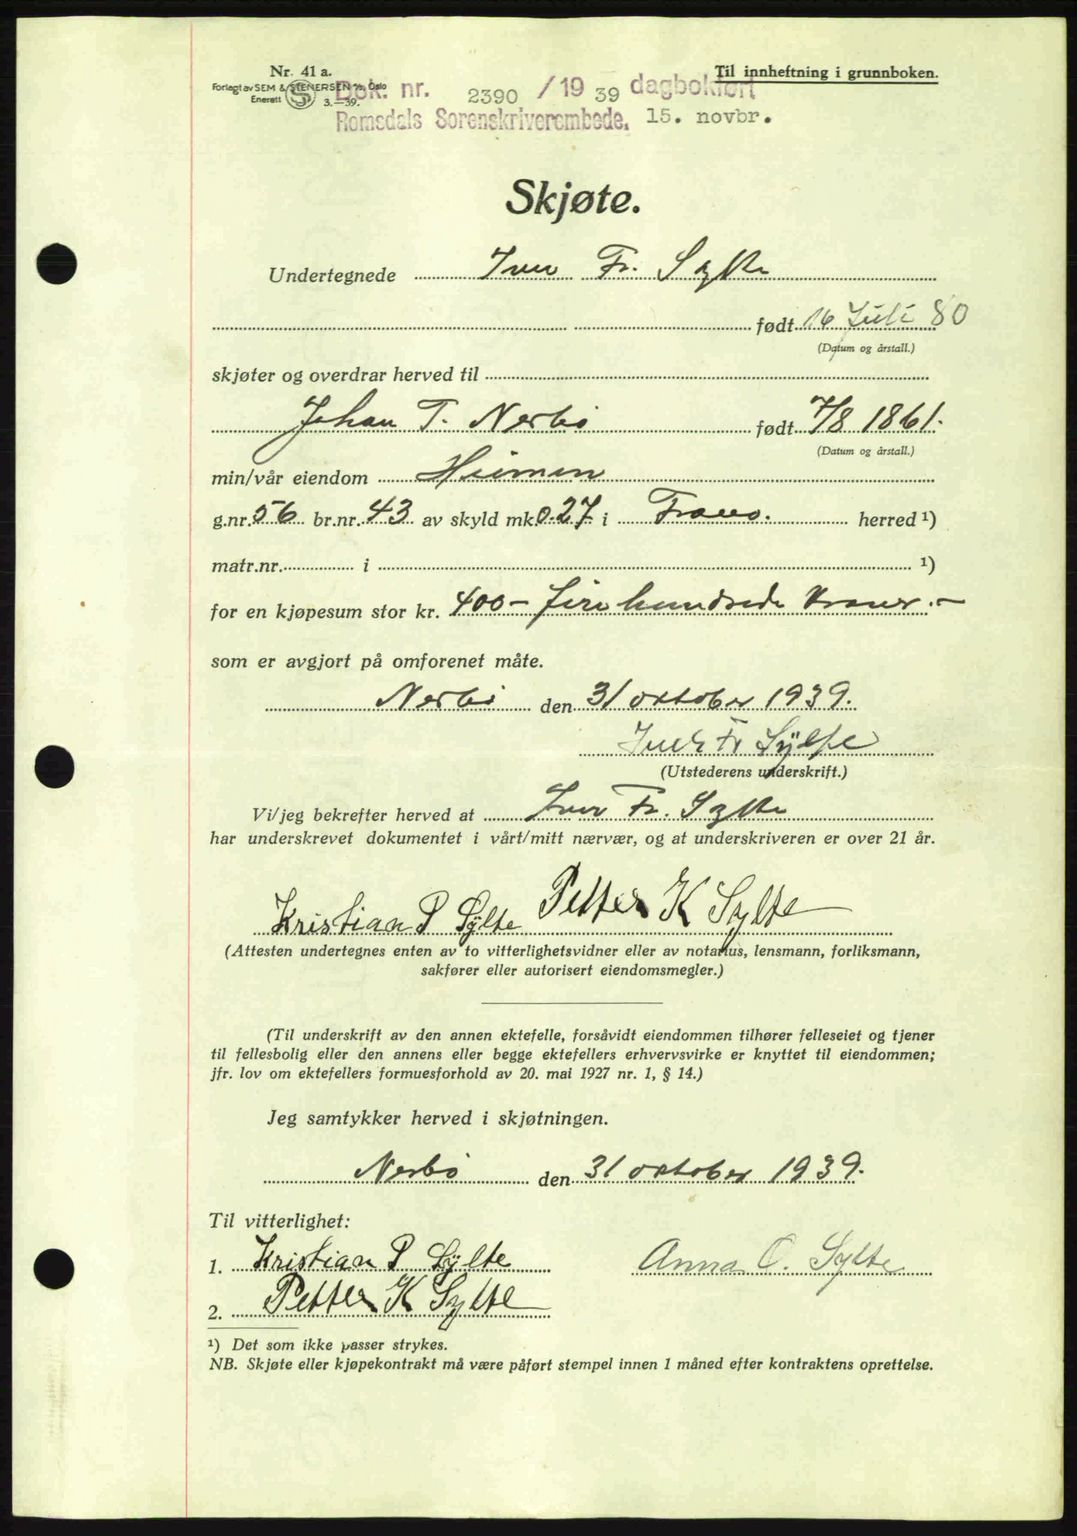 Nr. 41 a.
Til innheftning i grunnboken.
Forlagt av SEM & STENERSEN A/S, Oslo
Enerett S 3.—39.
Dok. nr. 2390 / 19 39 dagbokført
Romsdals Sorenskriverembede, 15. novbr.
Skjøte.
Undertegnede Iver Fr. Sylte
født 16 Juli 80
(Datum og årstall.)
skjøter og overdrar herved til
Johan T. Nerbö født 7/8 1861.
(Datum og årstall.)
min/vår eiendom Heimen
g.nr. 56 br.nr. 43 av skyld mk. 0.27 i Fræna. herred ¹)
matr.nr. i ¹)
for en kjøpesum stor kr. 400 – fire hundrede kroner. –
som er avgjort på omforenet måte.
Nerbö den 31 oktober 1939.
Iver Fr Sÿlte
(Utstederens underskrift.)
Vi/jeg bekrefter herved at Iver Fr. Sylte
har underskrevet dokumentet i vårt/mitt nærvær, og at underskriveren er over 21 år.
Kristian P Sÿlte Petter K Sylte
(Attesten undertegnes enten av to vitterlighetsvidner eller av notarius, lensmann, forliksmann,
sakfører eller autorisert eiendomsmegler.)
(Til underskrift av den annen ektefelle, forsåvidt eiendommen tilhører felleseiet og tjener
til fellesbolig eller den annens eller begge ektefellers erhvervsvirke er knyttet til eiendommen;
jfr. lov om ektefellers formuesforhold av 20. mai 1927 nr. 1, § 14.)
Jeg samtykker herved i skjøtningen.
Nerbö den 31 oktober 1939.
Til vitterlighet:
1. Kristian P Sÿlte Anna O. Sylte
2. Petter K Sylte
¹) Det som ikke passer strykes.
NB. Skjøte eller kjøpekontrakt må være påført stempel innen 1 måned efter kontraktens oprettelse.